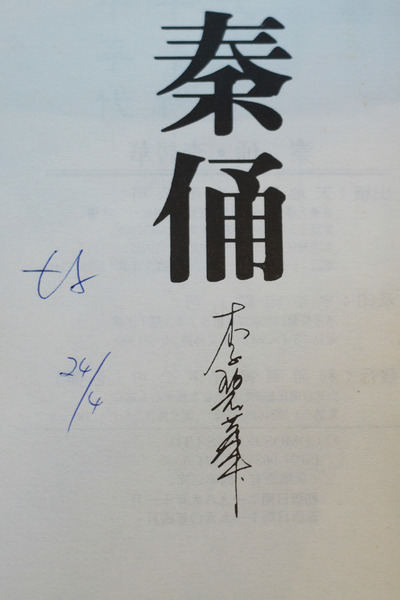 秦俑
李碧華
24/4